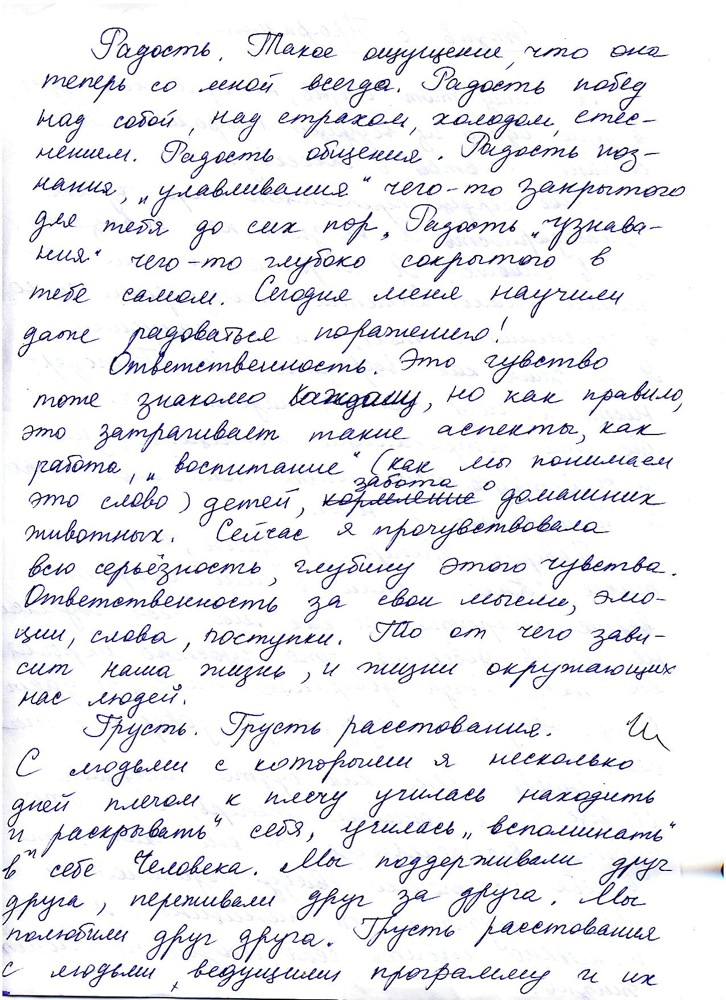 Радость. Такое ощущение, что она
теперь со мной всегда. Радость побед
над собой, над страхом, холодом, стес-
нением. Радость общения. Радость поз-
нания, „улавливания“ чего-то закрытого
для тебя до сих пор. Радость „узнава-
ния“ чего-то глубоко сокрытого в
тебе самом. Сегодня меня научили
даже радоваться поражению!
Ответственность. Это чувство
тоже знакомо каждому, но как правило,
это затрагивает такие аспекты, как
работа, „воспитание“ (как мы понимаем
забота о
это слово) детей, кормление домашних
животных. Сейчас я прочувствовала
всю серьёзность, глубину этого чувства.
Ответственность за свои мысли, эмо-
ции, слова, поступки. То от чего зави-
сит наша жизнь, и жизни окружающих
нас людей.
Грусть. Грусть расстования. И
С людьми с которыми я несколько
дней плечом к плечу училась находить
и „раскрывать“ себя, училась „вспоминать“
в себе Человека. Мы поддерживали друг
друга, переживали друг за друга. Мы
полюбили друг друга. Грусть расстования
с людьми, ведущими программу и их